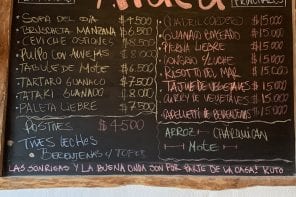 PRINCIPALES
SOPA DEL DIA $4.500
BRUSCHETTA MANZANA $6.500
CEVICHE OSTIONES $8.500
PULPO CON ALMEJAS $8.000
TABULE DE MOTE $6.500
TARTARO GUANACO $7.500
TATAKI GUANACO $8.000
PALETA LIEBRE $7.500
POSTRES $4.500
TRES LECHES
CORDERO $15.000
GUANACO BRASEADO $15.000
PIERNA LIEBRE $15.000
CONGRIO $15.000
RISOTTO DEL MAR $15.000
DE VEGETALES $15.000
CURRY DE VEGETALES $15.000
DE BERENJENAS $15.000
ARROZ CHARQUICAN
MOTE
LAS SONRISAS Y LA BUENA ONDA SON POR PARTE DE LA CASA!